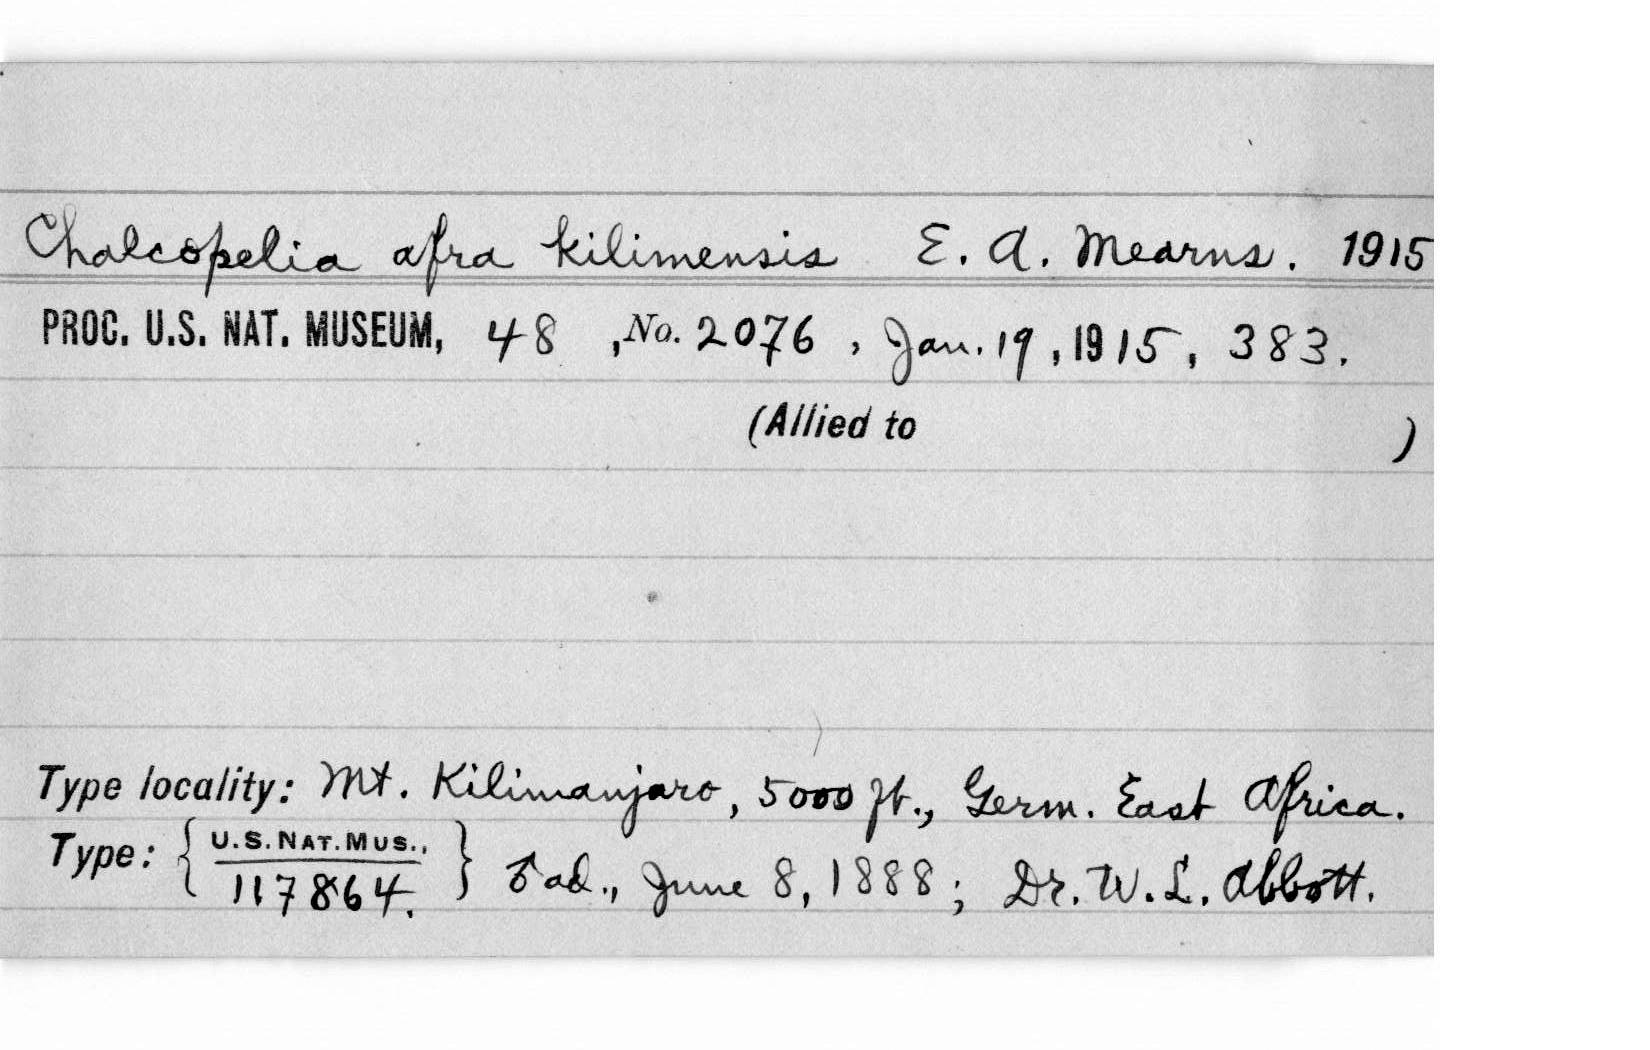 Chalcopelia afra kilimensis E. A. Mearns. 1915
PROC. U.S. NAT. MUSEUM, 48 , No. 2076 , Jan. 19 , 1915 , 383.
(Allied to )
Type locality: Mt. Kilimanjaro, 5000 ft., Germ. East Africa.
Type: { U.S. NAT. MUS., 117864. } ♂ ad., June 8, 1888; Dr. W. L. Abbott.